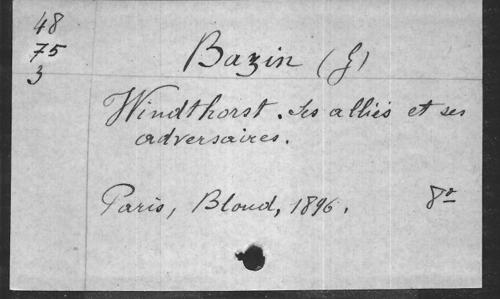 48
75
3
Bazin (G)
Windthorst. Ses alliés et ses
adversaires.
Paris, Bloud, 1896. 8º